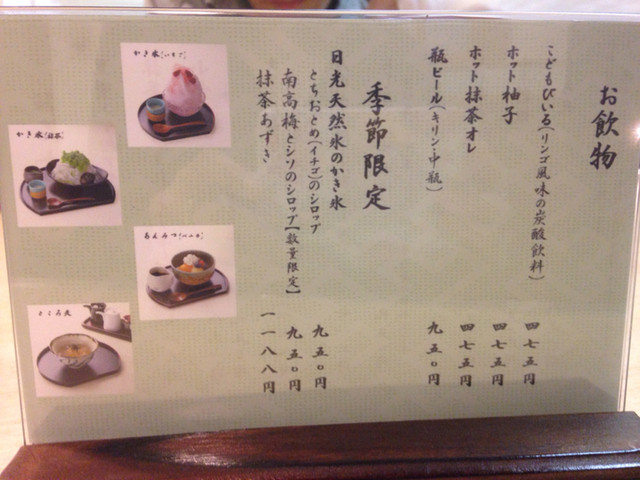 お飲物
こどもびいる(リンゴ風味の炭酸飲料) 四七五円
ホット柚子 四七五円
ホット抹茶オレ 四七五円
瓶ビール(キリン・中瓶) 九五〇円
季節限定
日光天然氷のかき氷
とちおとめ(イチゴ)のシロップ 九五〇円
南高梅とシソのシロップ【数量限定】 九五〇円
抹茶あずき 一一八八円
かき氷(いちご)
かき氷(抹茶)
あんみつ
ところ天